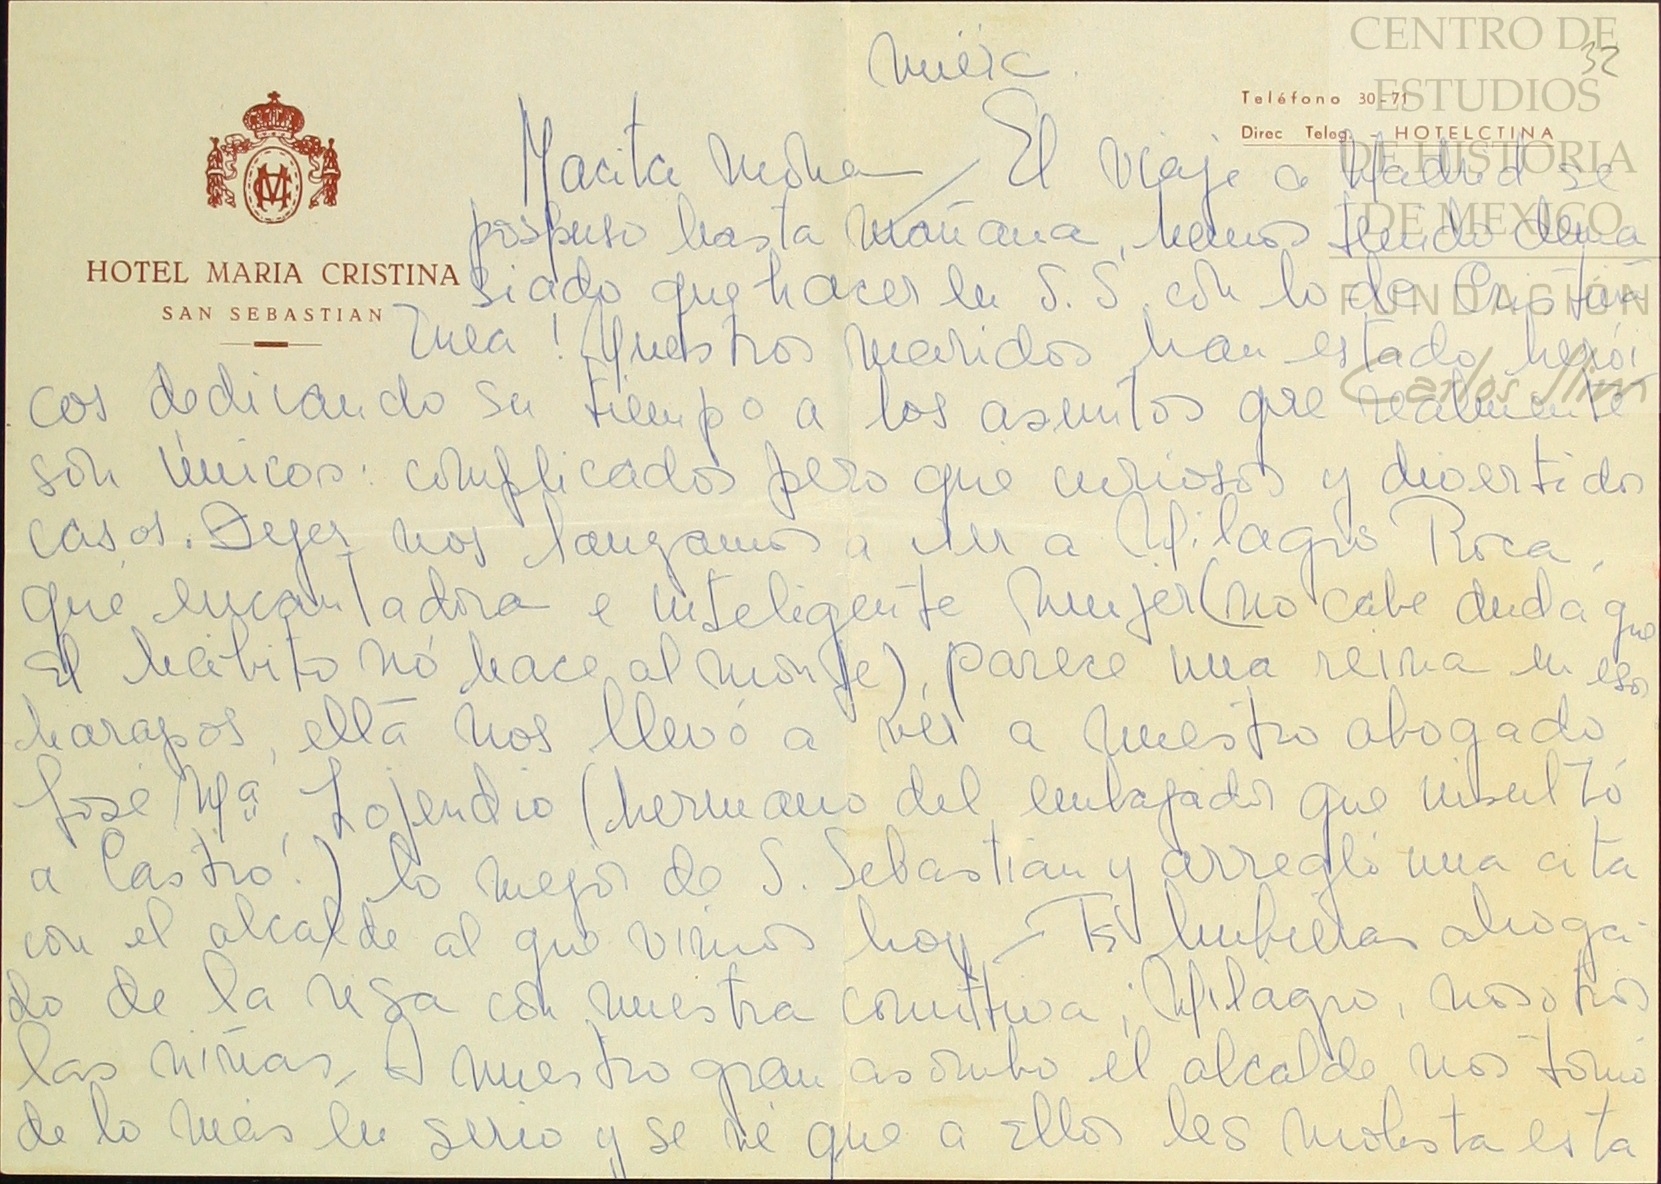 CENTRO DE
ESTUDIOS
DE HISTORIA
DE MEXICO
FUNDACIÓN
Carlos Slim
32
Teléfono 30-71
Direc Teleg. - HOTELCTINA
HOTEL MARIA CRISTINA
SAN SEBASTIAN
Mierc.
Macita mona — El viaje a Madrid se
pospuso hasta mañana, hemos tenido dema
siado que hacer en S. S. con lo de Cristina
Enea! Nuestros maridos han estado herói
cos dedicando su tiempo a los asuntos que realmente
son únicos: complicados pero que curiosos y divertidos
casos. Deyer nos lanzamos a ver a Milagro Roca,
que encantadora e inteligente mujer (no cabe duda que
El hábito nó hace al monje), parece una reina en esos
harapos, ella nos llevó a ver a nuestro abogado
José Mª Lojendio (hermano del embajador que insultó
a Castro!) lo mejor de S. Sebastian y arregló una cita
con el alcalde al que vimos hoy — Te hubieras ahoga-
do de la risa con nuestra comitiva; Milagro, nosotros
las niñas, A nuestro gran asombro el alcalde nos tomó
de lo más en serio y se vé que a Ellos les molesta esta